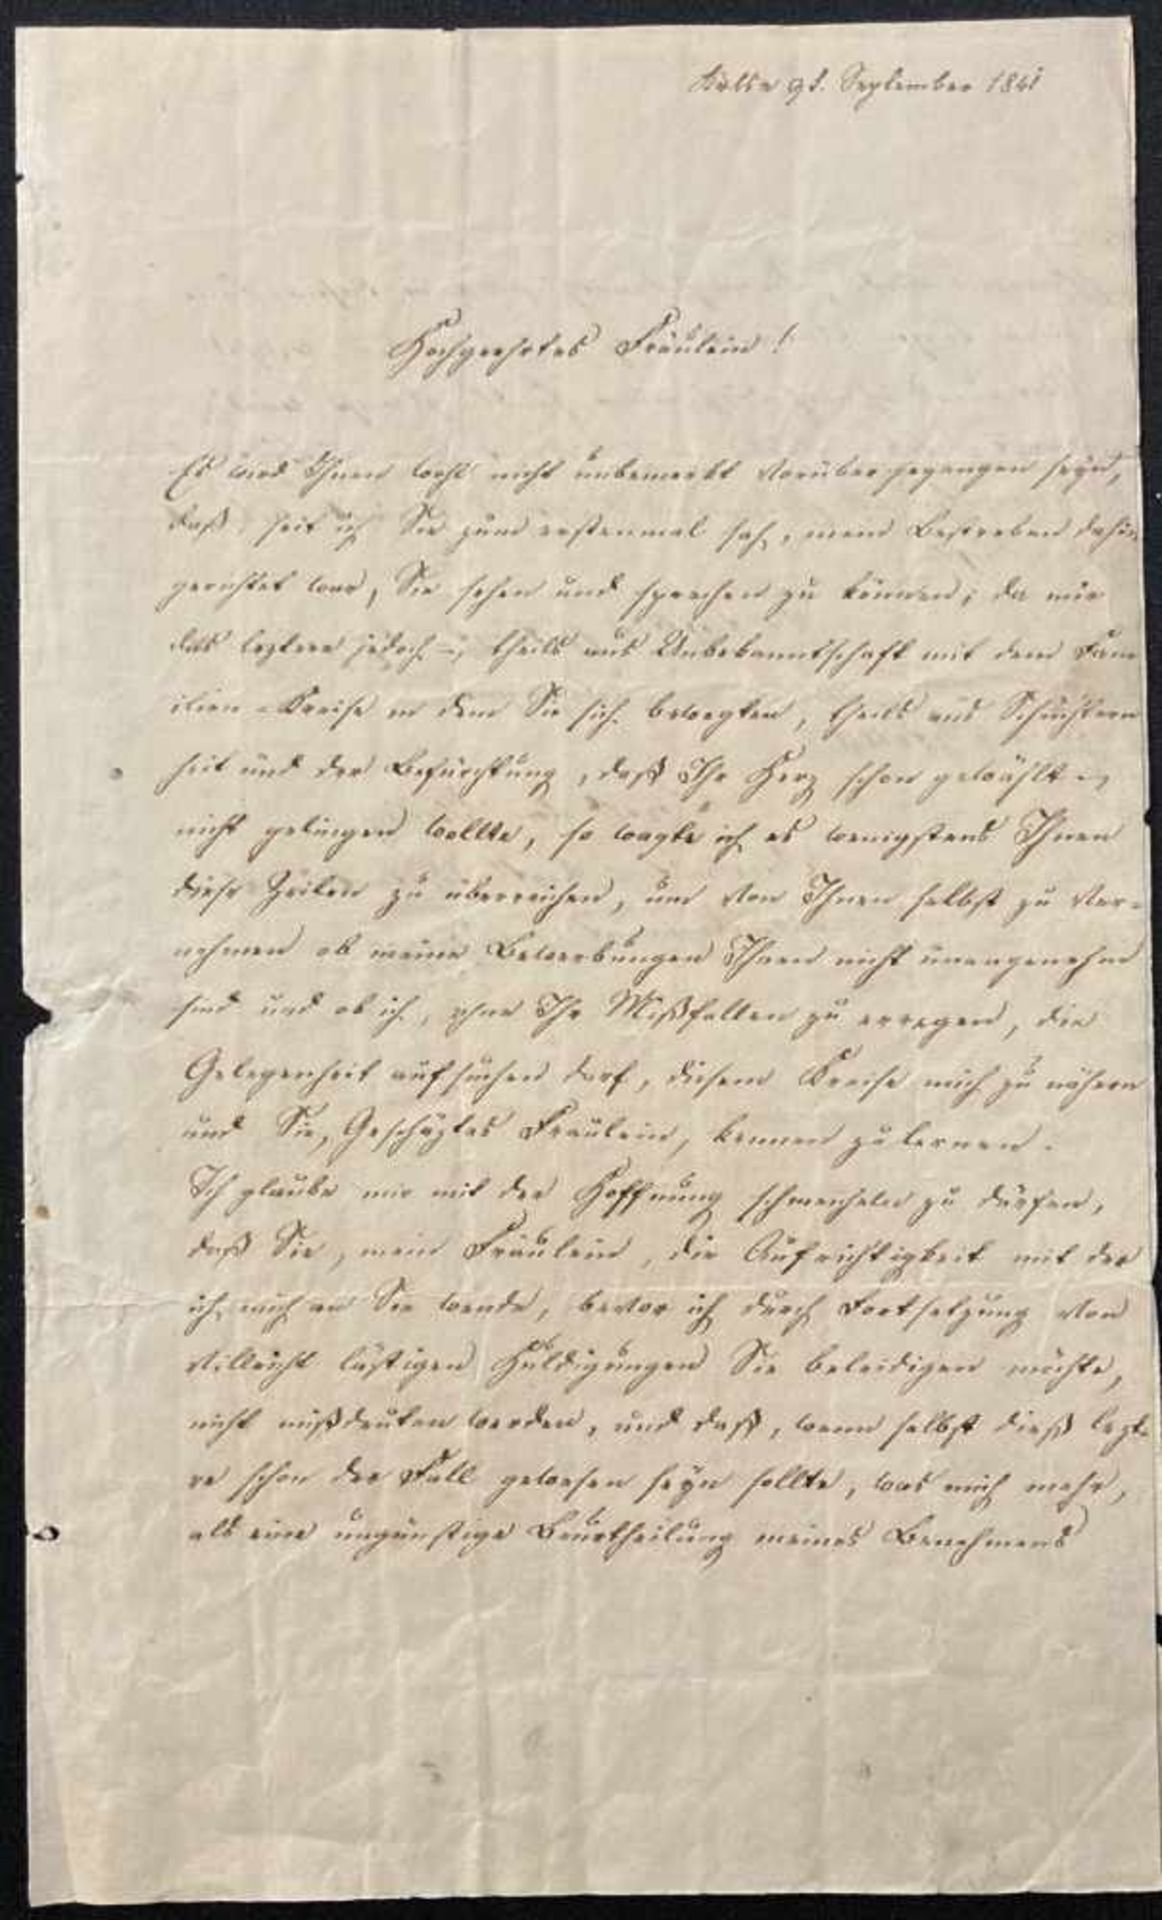 9t. September 1841
Hochgeehrtes Fräulein!
Es wird Ihnen wohl nicht unbemerkt vorüber gegangen seyn,
daß, seit ich Sie zum erstenmal sah, mein Bestreben dahin
gerichtet war, Sie sehen und sprechen zu können; da mir
das leztere jedoch –, theils aus Unbekanntschaft mit dem Fam
ilien-Kreise in dem Sie sich bewegten, theils aus Schüchtern
heit und der Befürchtung, daß Ihr Herz schon gewählt –,
nicht gelingen wollte, so wagte ich es wenigstens Ihnen
diese Zeilen zu überreichen, um von Ihnen selbst zu ver-
nehmen ob meine Bewerbungen Ihnen nicht unangenehm
sind und ob ich, ohne Ihr Mißfallen zu erregen, die
Gelegenheit aufsuchen darf, diesem Kreise mich zu nähern
und Sie, Geschäztes Fräulein, kennen zu lernen.
Ich glaube mir mit der Hoffnung schmeicheln zu dürfen,
daß Sie, mein Fräulein, die Aufrichtigkeit mit der
ich mich an Sie wende, bevor ich durch Fortsetzung von
villeicht lästigen Huldigungen Sie beleidigen möchte,
nicht mißdeuten werden, und daß, wenn selbst dieß lezte
re schon der Fall gewesen seyn sollte, was mich mehr,
als eine ungünstige Beurtheilung meines Benehmens